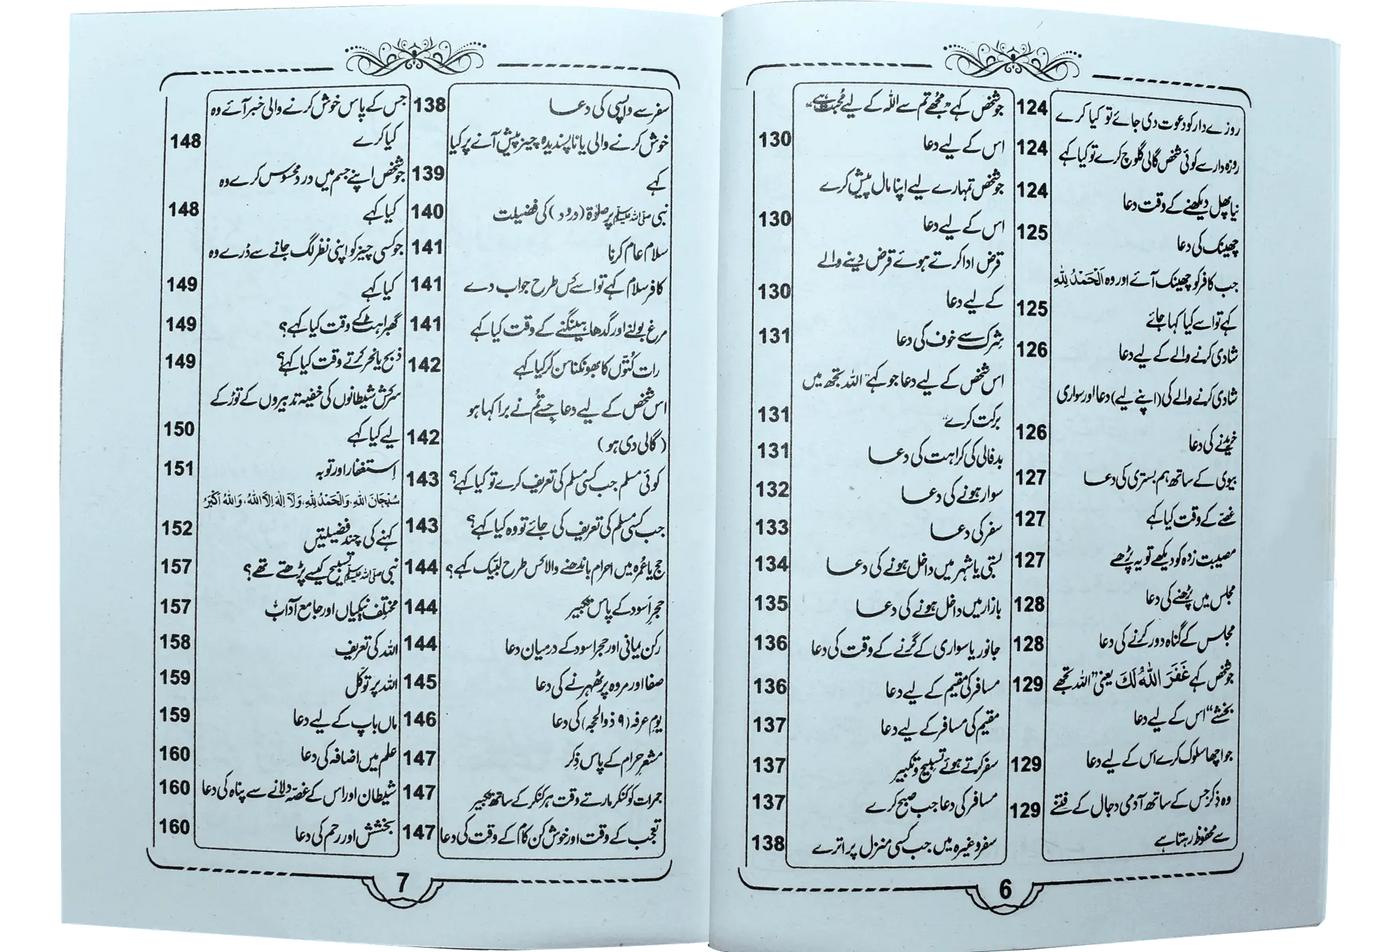 روزے دار کو دعوت دی جائے تو کیا کرے 124
روزہ دار سے کوئی شخص گالی گلوچ کرے تو کیا کہے 124
نیا پھل دیکھنے کے وقت دعا 124
چھینک کی دعا 125
جب کافر کو چھینک آئے اور وہ اَلْحَمْدُ لِلّٰهِ
کہے تو اسے کیا کہا جائے 125
شادی کرنے والے کے لیے دعا 126
شادی کرنے والے کی (اپنے لیے) دعا اور سواری
خریدنے کی دعا 126
بیوی کے ساتھ ہم بستری کی دعا 127
غصے کے وقت کیا کہے 127
مصیبت زدہ کو دیکھے تو یہ پڑھے 127
مجلس میں پڑھنے کی دعا 128
مجلس کے گناہ دور کرنے کی دعا 128
جو شخص کہے غَفَرَ اللّٰهُ لَكَ یعنی ”اللہ تجھے 129
بخشے“ اس کے لیے دعا
جو اچھا سلوک کرے اُس کے لیے دعا 129
وہ ذکر جس کے ساتھ آدمی دجال کے فتنے 129
سے محفوظ رہتا ہے
جو شخص کہے ”مجھے تم سے اللہ کے لیے محبت ہے“
اس کے لیے دعا 130
جو شخص تمہارے لیے اپنا مال پیش کرے
اس کے لیے دعا 130
قرض ادا کرتے ہوئے قرض دینے والے
کے لیے دعا 130
شرک سے خوف کی دعا 131
اس شخص کے لیے دعا جو کہے ”اللہ تجھ میں
برکت کرے 131
بدفالی کی کراہت کی دعا 131
سوار ہونے کی دعا 132
سفر کی دعا 133
بستی یا شہر میں داخل ہونے کی دعا 134
بازار میں داخل ہونے کی دعا 135
جانور یا سواری کے گرنے کے وقت کی دعا 136
مسافر کی مقیم کے لیے دعا 136
مقیم کی مسافر کے لیے دعا 137
سفر کرتے ہوئے تسبیح و تکبیر 137
مسافر کی دعا جب صبح کرے 137
سفر وغیرہ میں جب کسی منزل پر اترے 138
6
سفر سے واپسی کی دعا 138
خوش کرنے والی یا ناپسندیدہ چیز پیش آنے پر کیا
کہے 139
نبی ﷺ پر صلوٰۃ (درود) کی فضیلت 140
سلام عام کرنا 141
کافر سلام کہے تو اسے کس طرح جواب دے 141
مرغ بولنے اور گدھا ہینگنے کے وقت کیا کہے 141
رات کُتّوں کا بھونکنا سن کر کیا کہے 142
اس شخص کے لیے دعا جسے تم نے برا کہا ہو
(گالی دی ہو) 142
کوئی مسلم جب کسی مسلم کی تعریف کرے تو کیا کہے؟ 143
جب کسی مسلم کی تعریف کی جائے تو وہ کیا کہے؟ 143
حج یا عُمرہ میں احرام باندھنے والا کس طرح لبّیک کہے؟ 144
حجرِ اَسود کے پاس تکبیر 144
رکن یمانی اور حجر اسود کے درمیان دعا 144
صفا اور مروہ پر ٹھہرنے کی دعا 145
یومِ عرفہ (۹ ذوالحجہ) کی دعا 146
مشعرِ حرام کے پاس ذِکر 147
جمرات کو کنکر مارتے وقت ہر کنکر کے ساتھ تکبیر 147
تعجب کے وقت اور خوش کن کام کے وقت کی دعا 147
جس کے پاس خوش کرنے والی خبر آئے وہ
کیا کرے 148
جو شخص اپنے جسم میں درد محسوس کرے وہ
کیا کہے 148
جو کسی چیز کو اپنی نظر لگ جانے سے ڈرے وہ
کیا کہے 149
گھبراہٹ کے وقت کیا کہے؟ 149
ذبح یا نحر کرتے وقت کیا کہے؟ 149
سرکش شیطانوں کی خفیہ تدبیروں کے توڑ کے
لیے کیا کہے 150
اِستغفار اور توبہ 151
سُبْحَانَ اللّٰهِ، وَالْحَمْدُ لِلّٰهِ، وَلَآ اِلٰهَ اِلَّا اللّٰهُ، وَاللّٰهُ اَكْبَرُ
کہنے کی چند فضیلتیں 152
نبی ﷺ تسبیح کیسے پڑھتے تھے؟ 157
مختلف نیکیاں اور جامع آداب 157
اللہ کی تعریف 158
اللہ پر توکل 159
ماں باپ کے لیے دعا 159
علم میں اضافہ کی دعا 160
شیطان اور اس کے غصّہ دلانے سے پناہ کی دعا 160
بخشش اور رحم کی دعا 160
7